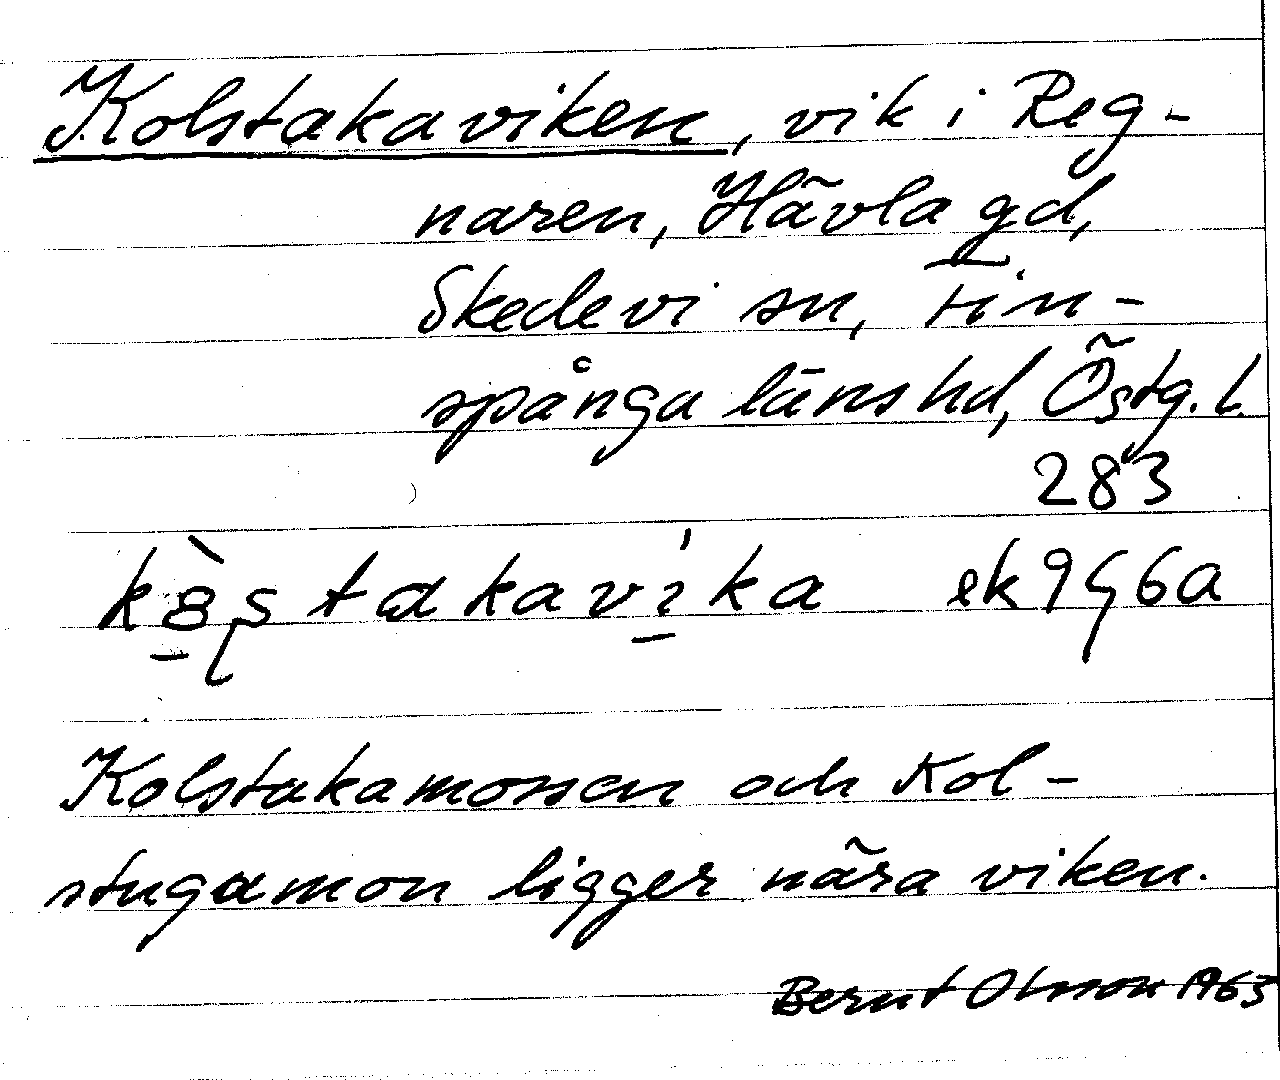 Kolstakaviken, vik i Reg-
naren, Hävla gd,
Skedevi sn, Fin-
spånga läns hd, Östg. l.
283
ek 9g6a
Kolstakamossen och Kol-
stugamon ligger nära viken.
Bernt Olsson 1963